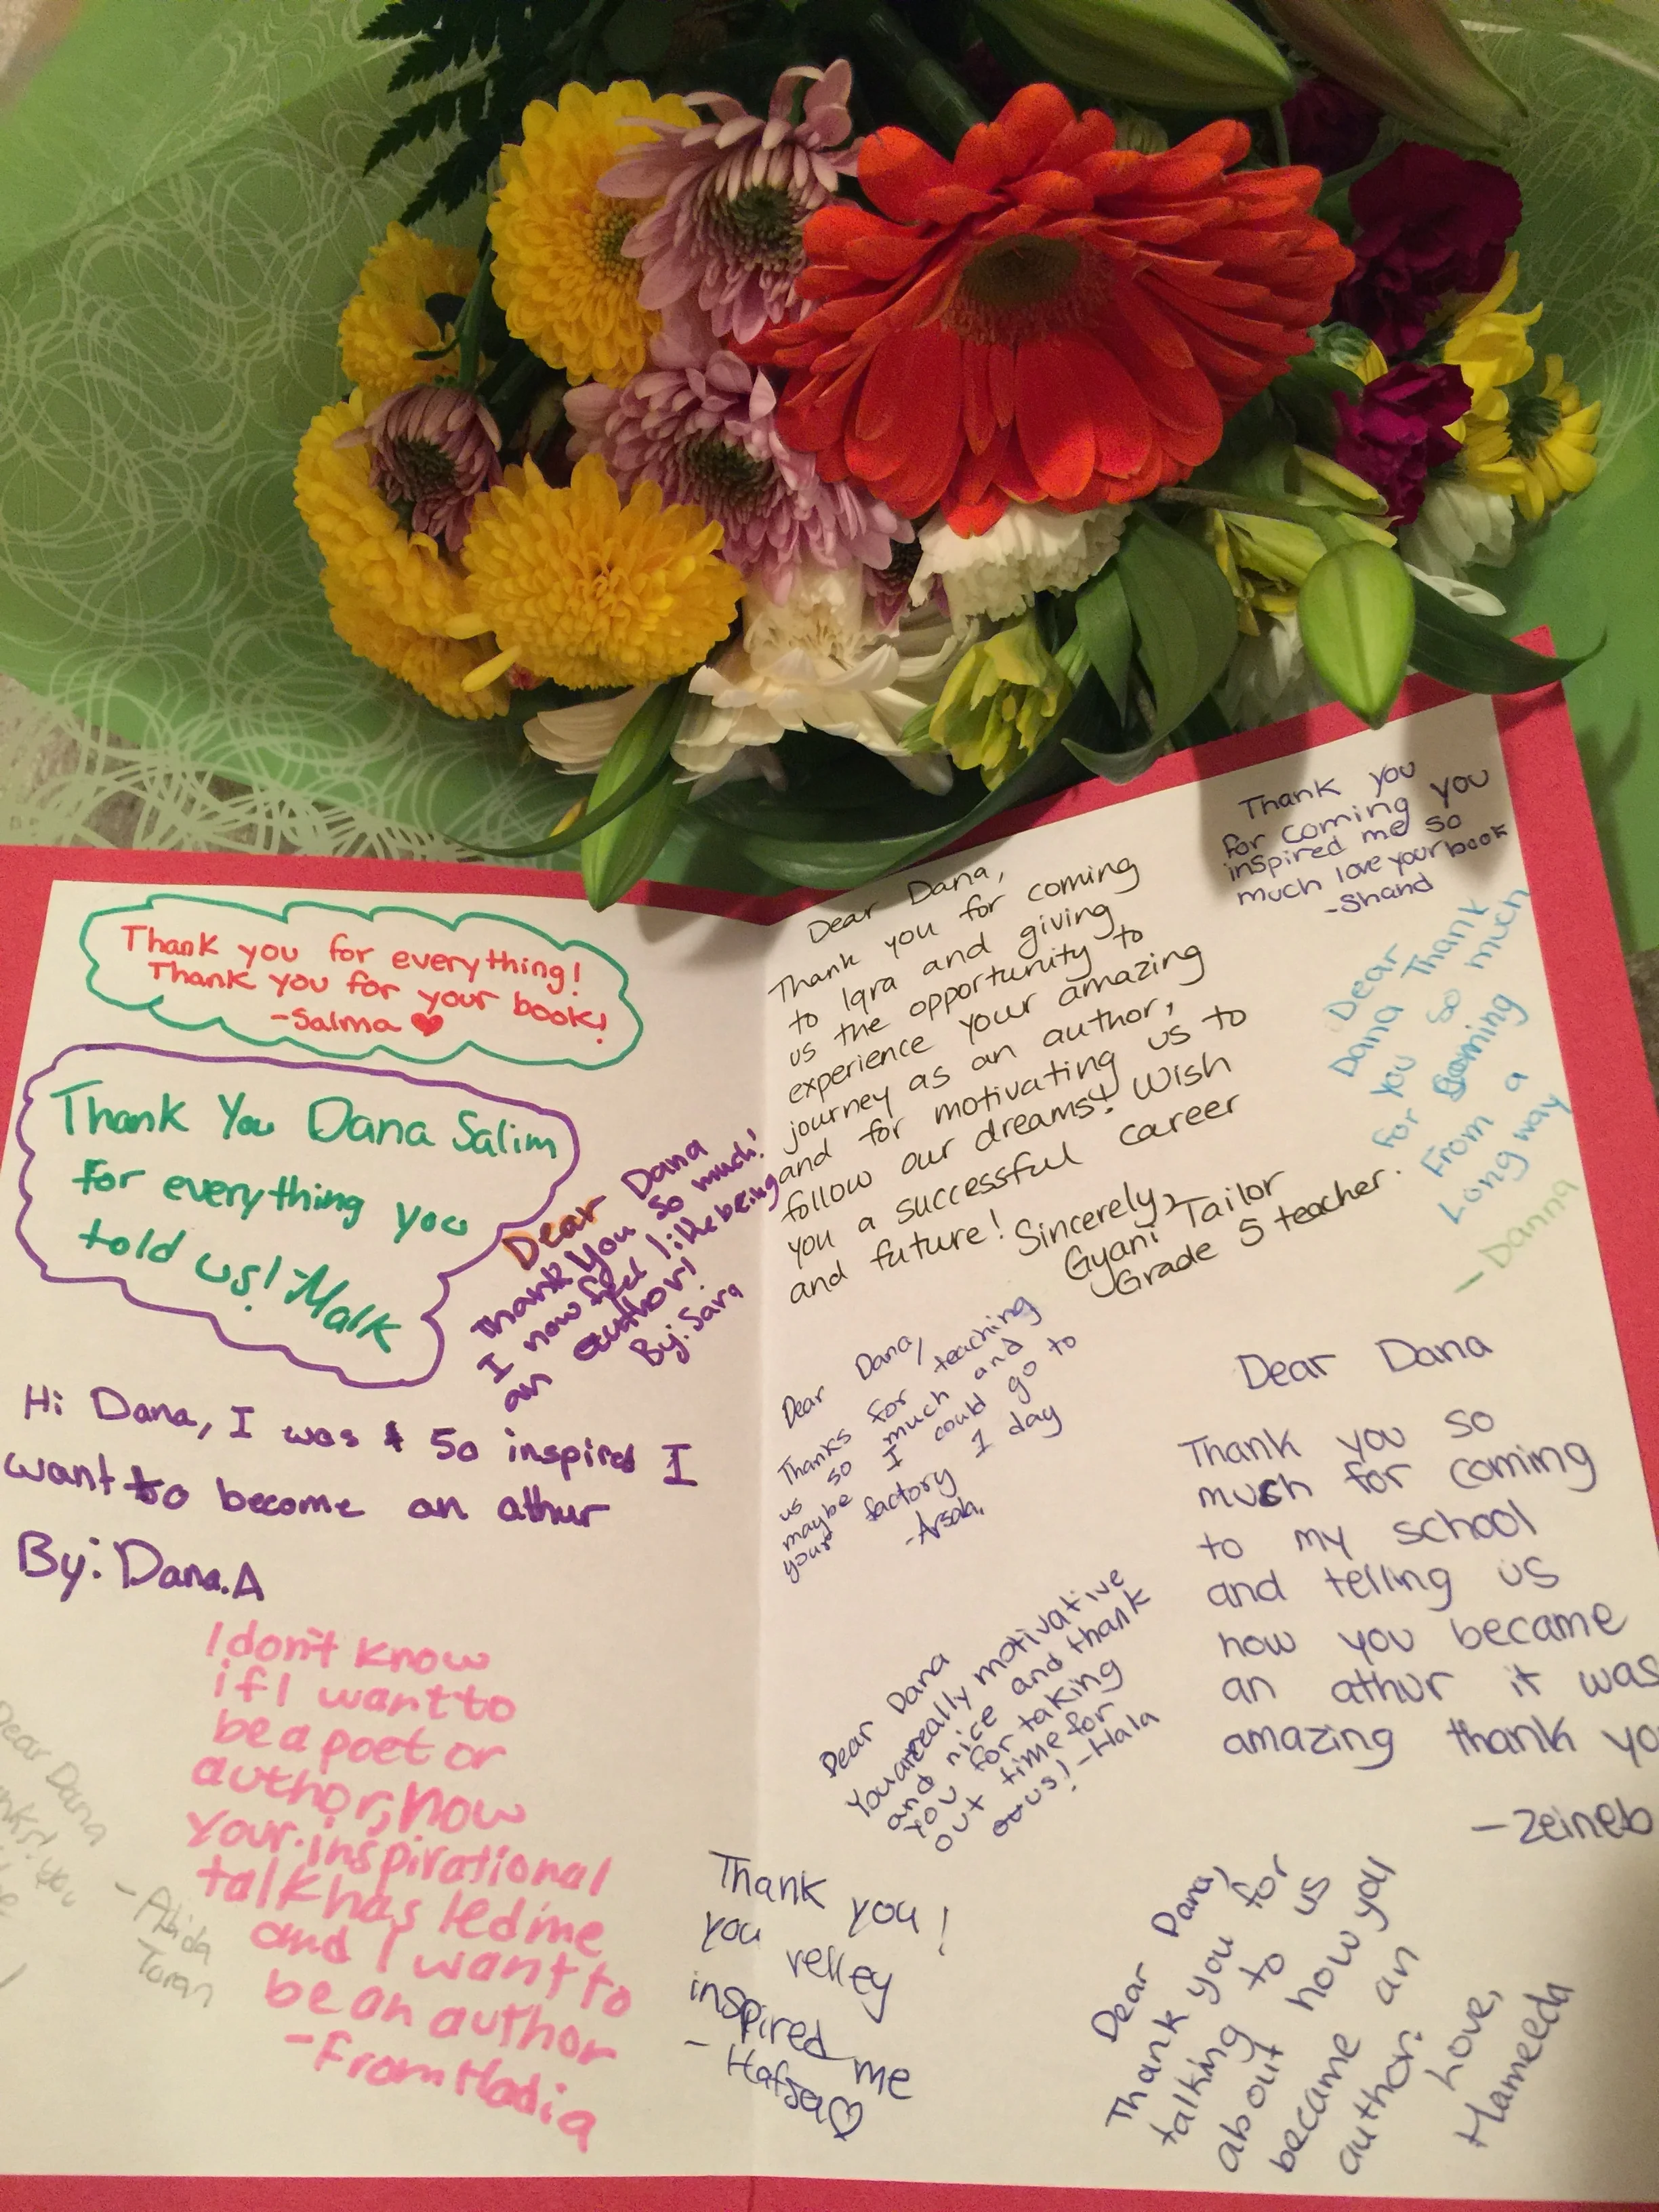 Thank you for everything!
Thank you for your book!
-Salma
Thank You Dana Salim
for everything you
told us! -Malk
Dear Dana
Thank you so much!
I now feel like being
an author!
By: Sara
Hi Dana, I was so inspired I
want to become an athur
By: Dana.A
I don't know
if I want to
be a poet or
author, now
your inspirational
talk has led me
and I want to
be an author
-From Hadia
Dear Dana
you
- Abida
Toran
Dear Dana,
Thank you for coming
to Iqra and giving
us the opportunity to
experience your amazing
journey as an author,
and for motivating us to
follow our dreams! Wish
you a successful career
and future!
Sincerely,
Gyani Tailor
Grade 5 teacher.
Thank you
for coming you
inspired me so
much love your book
-Shand
Dear
Dana Thank
you so much
for coming
From a
Long way
- Danna
Dear Dana,
Thanks for teaching
us so much and
maybe I could go to
your factory 1 day
-Arsah
Dear Dana
You are really motivative
and nice and thank
you for taking
out time for
us! -Hala
Dear Dana
Thank you so
much for coming
to my school
and telling us
how you became
an athur it was
amazing thank yo
-Zeineb
Thank you!
you relley
inspired me
- Hafsa
Dear Dana,
Thank you for
talking to us
about how you
became an
author.
Love,
Hameeda